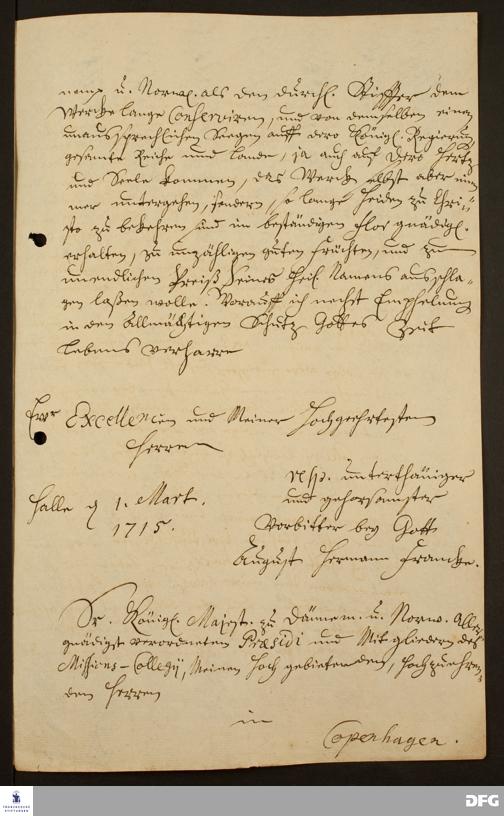 nem. u. Norw. als den durchl. Stiffter dem
Wercke lange conserviren, und von demselben einen
unaussprechlichen Segen auff dero Königl. Regierung
gesamte Reiche und Lande, ja auch auf dero Hertz
und Seele kommen, das Werck selbst aber nim
mer untergehen, sondern, so lange Heiden zu Chri-
sto zu bekehren sind im beständigen Flor gnädigl.
erhalten, zu unzähligen guten Früchten, und zum
unendlichen Preiß Seines heil. Namens ausschla-
gen laßen wolle. Worauff ich nechst Empfelung
in den Allmächtigen Schutz Gottes Zeit
Lebens verharre
Ewr Excellencien und Meiner Hochgeehrtesten
Herren
resp. unterthäniger
Halle d 1. Mart.
und gehorsamster
1715.
Vorbitter bey Gott
August Hermann Francke.
Sr. Königl. Majest. zu Dännem. u. Norw. Aller-
gnädigst verordneten Præsidi und Mitgliedern des
Missions-Collegij, Meinen Hochgebietenden, Hochzuehren-
den Herren
in
Copenhagen.
FRANCKESCHE
STIFTUNGEN
DFG